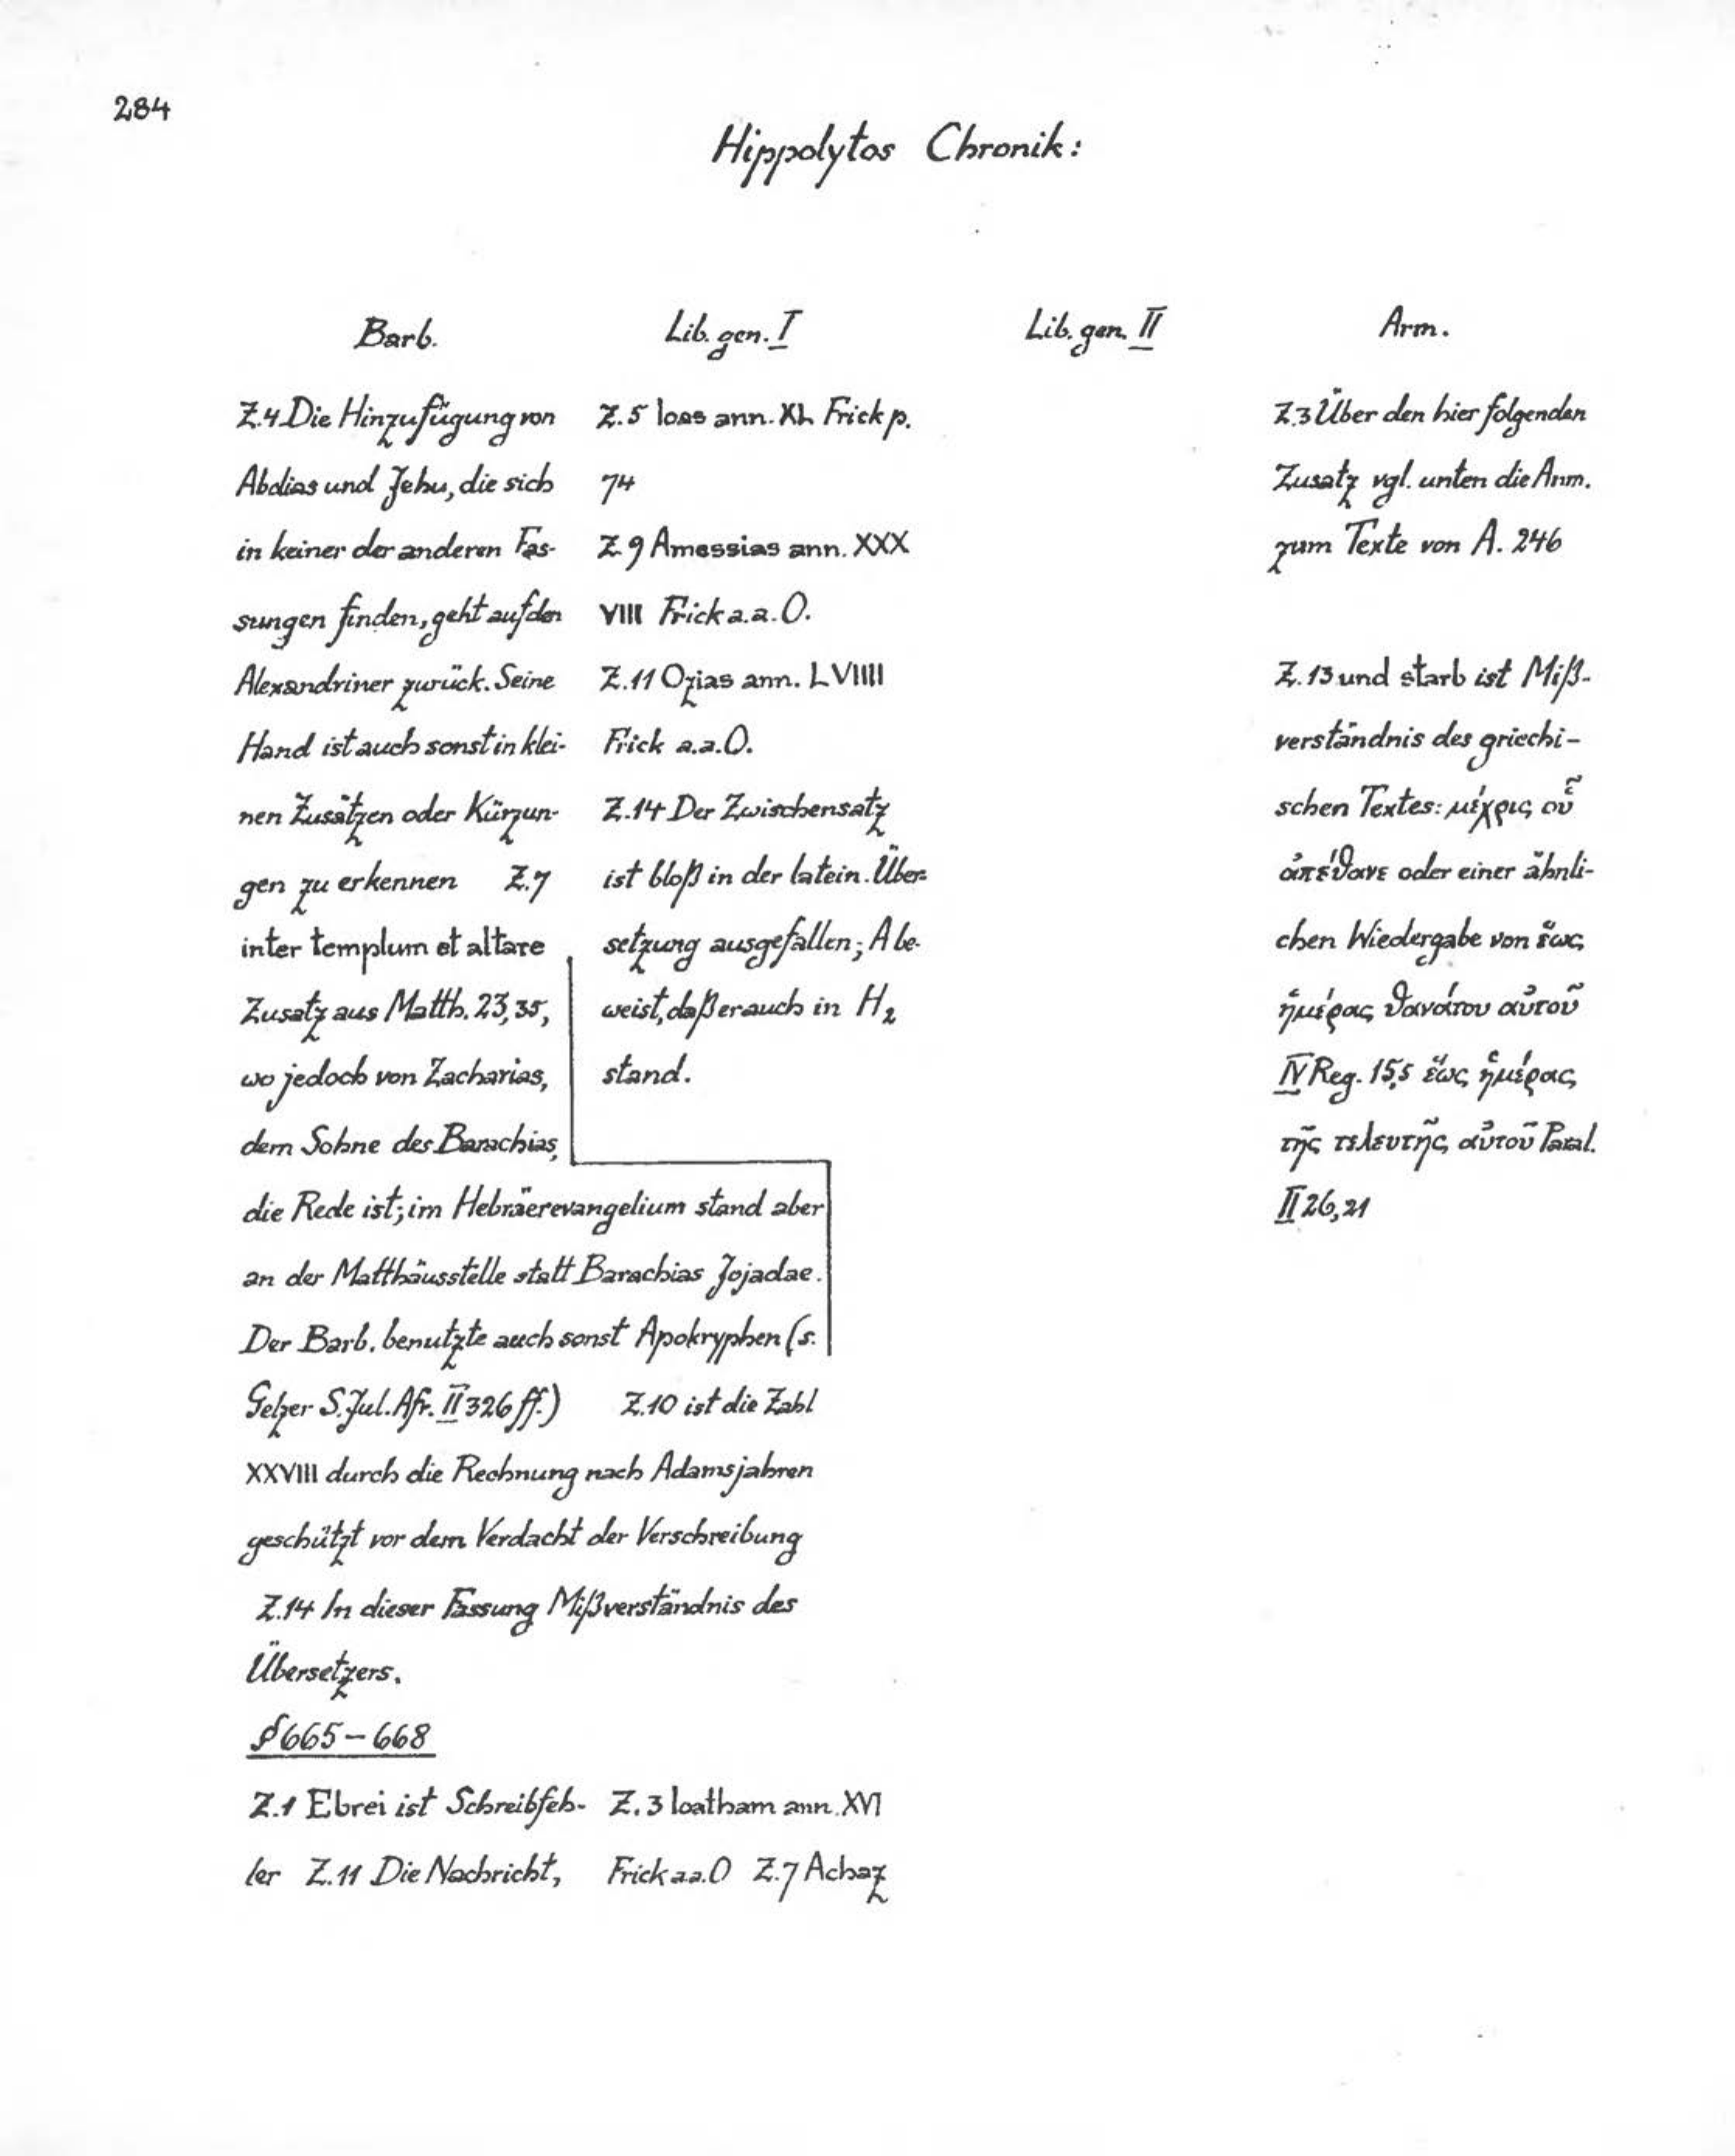 284
Hippolytos Chronik:
Barb.
Z.4 Die Hinzufügung von
Abdias und Jehu, die sich
in keiner der anderen Fas-
sungen finden, geht auf den
Alexandriner zurück. Seine
Hand ist auch sonst in klei-
nen Zusätzen oder Kürzun-
gen zu erkennen Z.7
inter templum et altare
Zusatz aus Matth. 23,35,
wo jedoch von Zacharias,
dem Sohne des Barachias,
die Rede ist; im Hebräerevangelium stand aber
an der Matthäusstelle statt Barachias Jojadae.
Der Barb. benutzte auch sonst Apokryphen (s.
Gelzer S. Jul. Afr. II 326 ff.) Z.10 ist die Zahl
XXVIII durch die Rechnung nach Adamsjahren
geschützt vor dem Verdacht der Verschreibung
Z.14 In dieser Fassung Mißverständnis des
Übersetzers.
Lib. gen. I
Z.5 Ioas ann. XL Frick p.
74
Z.9 Amessias ann. XXX
VIIII Frick a.a.O.
Z.11 Ozias ann. LVIIII
Frick a.a.O.
Z.14 Der Zwischensatz
ist bloß in der latein. Über-
setzung ausgefallen; A be-
weist, daß er auch in H2
stand.
Lib. gen. II
Arm.
Z.3 Über den hier folgenden
Zusatz vgl. unten die Anm.
zum Texte von A. 246
Z.13 und starb ist Miß-
verständnis des griechi-
schen Textes: μέχρις οὗ
ἀπέθανε oder einer ähnli-
chen Wiedergabe von ἕως
ἡμέρας θανάτου αὐτοῦ
IV Reg. 15,5 ἕως ἡμέρας
τῆς τελευτῆς αὐτοῦ Paral.
II 26,21
§ 665–668
Z.1 Ebrei ist Schreibfeh-
ler Z.11 Die Nachricht,
Z.3 Ioatham ann. XVI
Frick a.a.O Z.7 Achaz